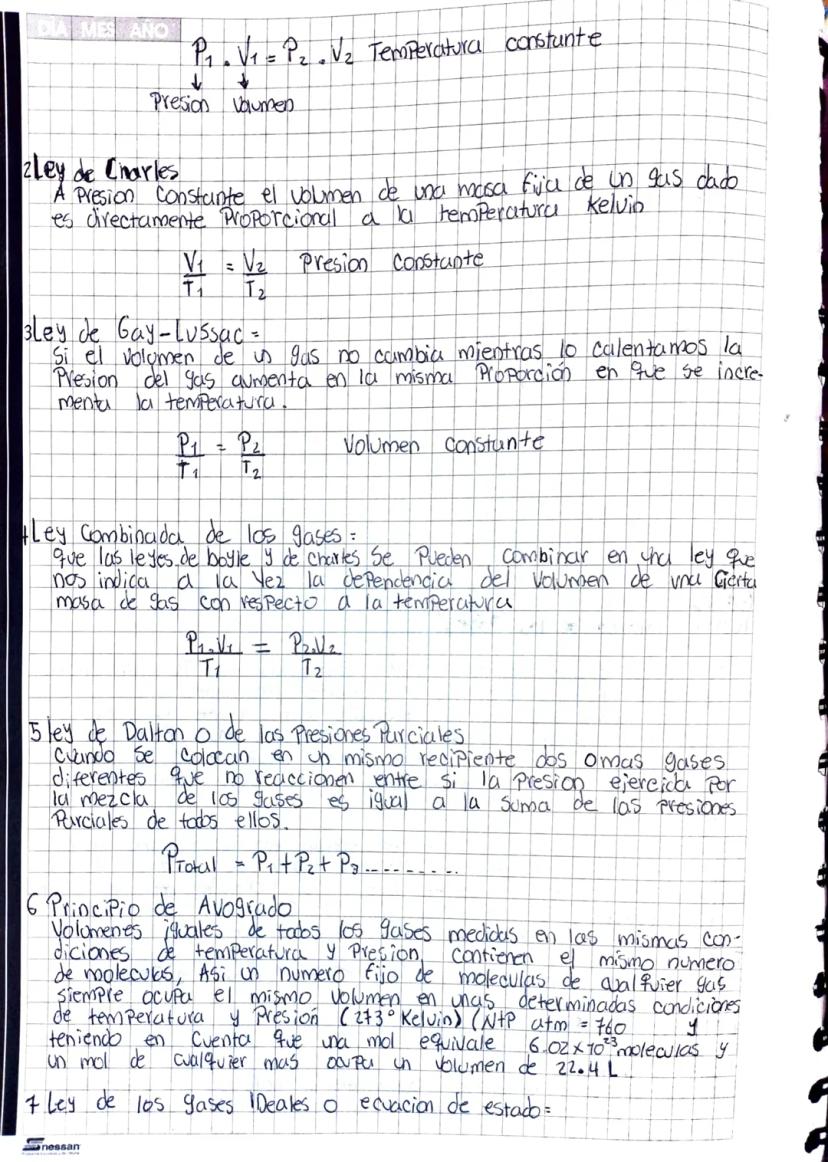 DIA MES AÑO
P₁ . V₁ = P₂ . V₂ Temperatura constante
↓ ↓
Presion Volumen
2 Ley de Charles
A Presion constante el volumen de una masa fija de un gas dado
es directamente Proporcional a la temperatura Kelvin
V₁/T₁ = V₂/T₂ Presion constante
3 Ley de Gay-Lussac =
Si el volumen de un gas no cambia mientras lo calentamos la
Presion del gas aumenta en la misma Proporción en que se incre-
menta la temperatura.
P₁/T₁ = P₂/T₂ Volumen constante
4 Ley Combinada de los gases =
que las leyes de boyle y de charles se Pueden combinar en una ley que
nos indica a la vez la dependencia del volumen de una Cierta
masa de gas con respecto a la temperatura
P₁.V₁/T₁ = P₂.V₂/T₂
5 ley de Dalton o de las Presiones Parciales
Cuando se colocan en un mismo recipiente dos o mas gases
diferentes que no reaccionen entre si la Presion ejercida Por
la mezcla de los gases es igual a la suma de las presiones
Parciales de todos ellos.
PTotal = P₁ + P₂ + P₃ .........
6 Principio de Avogrado
Volumenes iguales de todos los gases medidas en las mismas con-
diciones de temperatura y Presion, contienen el mismo numero
de moleculas, Asi un numero fijo de moleculas de cualquier gas
siempre ocupa el mismo volumen en unas determinadas condiciones
de temperatura y Presión (273° Kelvin) (NtP atm = 760 y
teniendo en cuenta que una mol equivale 6.02 x 10²³ moleculas y
un mol de cualquier mas ocupa un volumen de 22.4 L
7 Ley de los gases IDeales o ecuacion de estado =
nessan